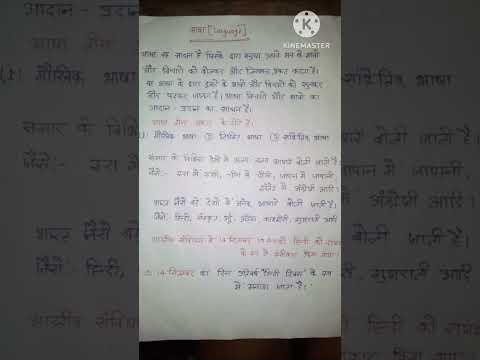 भाषा [Language]
भाषा वह साधन है जिसके द्वारा मनुष्य अपने मन के भावों
और विचारों को बोलकर और लिखकर प्रकट करता है।
या भाषा के द्वारा दूसरों के भावों और विचारों को सुनकर
और पढकर जानता है। भाषा विचारों और भावों का
आदान - प्रदान का साधन है।
भाषा तीन प्रकार के होते हैं।
① मौखिक भाषा ② लिखित भाषा ③ सांकेतिक भाषा
संसार के विभिन्न देशों में अलग अलग भाषाएं बोली जाती है।
जैसे:- रूस में रूसी, चीन में चीनी, जापान में जापानी,
इंग्लैंड में अंग्रेजी आदि।
भारत जैसे बड़े देशों में अनेक भाषाएं बोली जाती है।
जैसे:- हिन्दी, संस्कृत, उर्दू, कश्मीरी, गुजराती आदि
भारतीय संविधान में 14 सितम्बर 1949 को हिन्दी को
के रूप में स्वीकार किया गया।
14 सितम्बर का दिन प्रतिवर्ष "हिन्दी दिवस" के रूप
में मनाया जाता है।
KINEMASTER